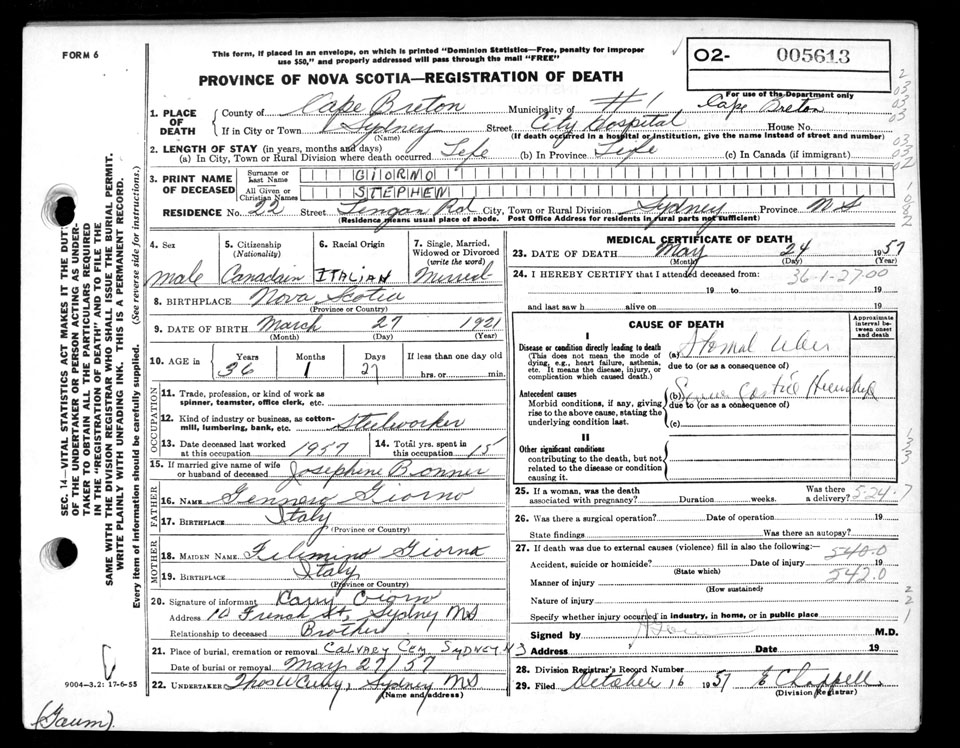 FORM 6
This form, if placed in an envelope, on which is printed "Dominion Statistics—Free, penalty for improper
use $50," and properly addressed will pass through the mail "FREE"
02- 005613
For use of the Department only
PROVINCE OF NOVA SCOTIA—REGISTRATION OF DEATH
1. PLACE OF DEATH County of Cape Breton Municipality of #1 Cape Breton
If in City or Town Sydney (Name) Street City Hospital House No.
(If death occurred in a hospital or institution, give the name instead of street and number)
2. LENGTH OF STAY (in years, months and days)
(a) In City, Town or Rural Division where death occurred Life (b) In Province Life (c) In Canada (if immigrant)
3. PRINT NAME OF DECEASED Surname or Last Name GIORNO
All Given or Christian Names STEPHEN
RESIDENCE No. 22 Street Lingan Rd City, Town or Rural Division Sydney Province NS
(Residence means usual place of abode. Post Office Address for residents in rural parts not sufficient)
4. Sex Male
5. Citizenship (Nationality) Canadain
6. Racial Origin ITALIAN
7. Single, Married, Widowed or Divorced (write the word) Married
8. BIRTHPLACE Nova Scotia
(Province or Country)
9. DATE OF BIRTH March 27 1921
(Month) (Day) (Year)
10. AGE in Years 36 Months 1 Days 27 If less than one day old hrs. or min.
OCCUPATION
11. Trade, profession, or kind of work as spinner, teamster, office clerk, etc.
12. Kind of industry or business, as cotton-mill, lumbering, bank, etc. Steelworker
13. Date deceased last worked at this occupation 1957 14. Total yrs. spent in this occupation 15
15. If married give name of wife or husband of deceased Josephine Bonner
FATHER
16. NAME Gennero Giorno
17. BIRTHPLACE Italy
(Province or Country)
MOTHER
18. MAIDEN NAME Filimino Giorno
19. BIRTHPLACE Italy
(Province or Country)
20. Signature of informant Giorno
Address 10 French St, Sydney NS
Relationship to deceased Brother
21. Place of burial, cremation or removal CALVARY CEM SYDNEY N S
Date of burial or removal May 27/57
22. UNDERTAKER Thos W Curry, Sydney NS
(Name and address)
MEDICAL CERTIFICATE OF DEATH
23. DATE OF DEATH May 24 1957
(Month) (Day) (Year)
24. I HEREBY CERTIFY that I attended deceased from: 36-1-27.00
19 to 19
and last saw h alive on 19
CAUSE OF DEATH
Approximate interval between onset and death
I
Disease or condition directly leading to death
(This does not mean the mode of dying, e.g., heart failure, asthenia, etc. It means the disease, injury, or complication which caused death.)
(a) Stomal Ulcer
due to (or as a consequence of)
Antecedent causes
Morbid conditions, if any, giving rise to the above cause, stating the underlying condition last.
(b)
due to (or as a consequence of)
(c)
II
Other significant conditions
contributing to the death, but not related to the disease or condition causing it.
25. If a woman, was the death associated with pregnancy? Duration weeks. Was there a delivery? 5-24-7
26. Was there a surgical operation? Date of operation 19
State findings Was there an autopsy?
27. If death was due to external causes (violence) fill in also the following:— 540.0
Accident, suicide or homicide? Date of injury 19
(State which) 542.0
Manner of injury
(How sustained)
Nature of injury
Specify whether injury occurred in industry, in home, or in public place
Signed by M.D.
Address Date 19
28. Division Registrar's Record Number
29. Filed October 16 1957 E Chappell
(Division Registrar)
SEC. 14—VITAL STATISTICS ACT MAKES IT THE DUTY
OF THE UNDERTAKER OR PERSON ACTING AS UNDER-
TAKER TO OBTAIN ALL THE PARTICULARS REQUIRED
IN THE "REGISTRATION OF DEATH" AND TO FILE THE
SAME WITH THE DIVISION REGISTRAR WHO SHALL ISSUE THE BURIAL PERMIT.
WRITE PLAINLY WITH UNFADING INK. THIS IS A PERMANENT RECORD.
Every item of information should be carefully supplied. (See reverse side for instructions.)
9004-3.2: 17-6-53